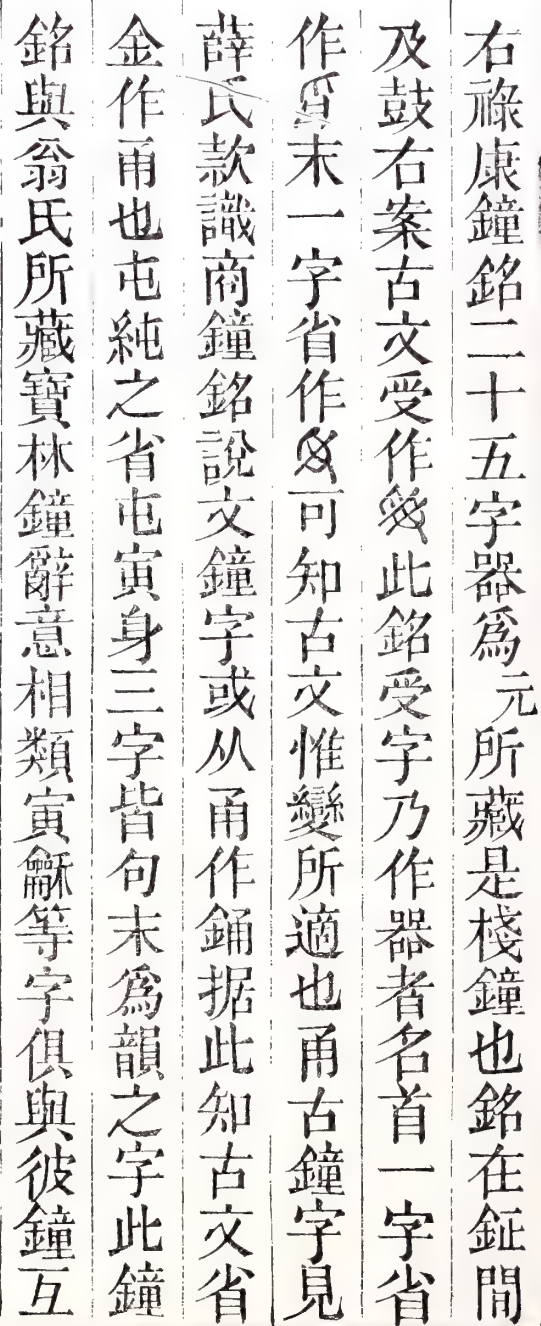 右祿康鐘銘二十五字器爲元所藏是棧鐘也銘在鉦閒
及鼓右案古文受作此銘受字乃作器者名首一字省
作末一字省作可知古文惟變所適也甬古鐘字見
薛氏款識商鐘銘說文鐘字或从甬作銿据此知古文省
金作甬也屯純之省屯寅身三字皆句末爲韻之字此鐘
銘與翁氏所藏寶林鐘辭意相類寅龢等字俱與彼鐘互